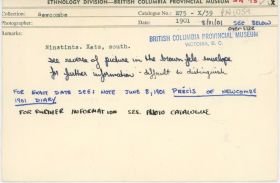 ETHNOLOGY DIVISION—BRITISH COLUMBIA PROVINCIAL MUSEUM
Collection: Newcombe Catalogue No.: E75 - X/39 PN1039
Photographer: Date: 1901 8/11/01 SEE BELOW
Remarks:
BRITISH COLUMBIA PROVINCIAL MUSEUM
VICTORIA, B. C.
Ninstints. Xats, south.
see reverse of picture in the brown file envelope
for further information - difficult to distinguish
FOR EXACT DATE SEE: NOTE JUNE 8, 1901 PRÉCIS OF NEWCOMBE
1901 DIARY
FOR FURTHER INFORMATION SEE PHOTO CATALOGUE